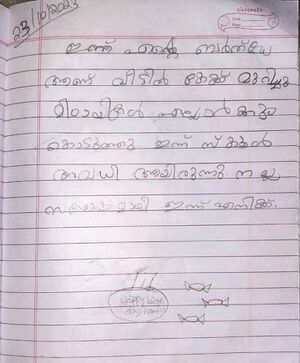 23/10/2023
ഇന്ന് എന്റെ ബർത്ഡേ
ആണ് വീട്ടിൽ കേക്ക് മുറിച്ചു
മിഠായികൾ എല്ലാർക്കും
കൊടുത്തു ഇന്ന് സ്കൂൾ
അവധി ആയിരുന്നു നല്ല
ഇന്ന് എനിക്ക്.
Happy